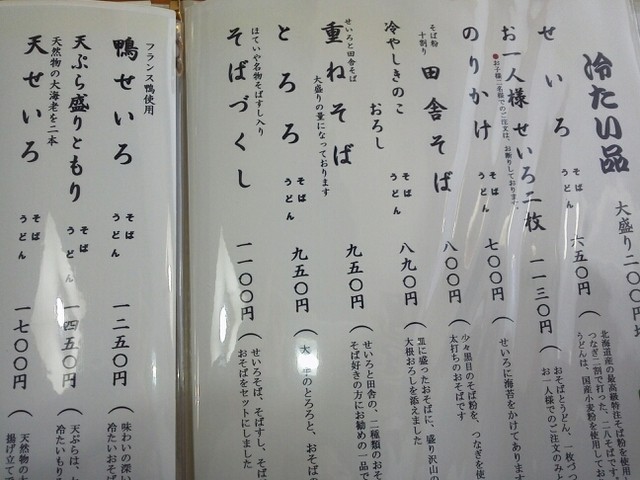 冷たい品
大盛り二〇〇円
せいろ
そば
うどん
六五〇円
北海道産の最高級特注そば粉を使用し
つなぎ二割で打った、二八そばです。
うどんは、国産小麦粉を使用してお
お一人様せいろ二枚
●お子様二名様でのご注文は、お断りしております。
一一三〇円
おそばとうどん、一枚づつ
お一人様でのご注文のみと
のりかけ
そば
うどん
七〇〇円
せいろに海苔をかけてあります
そば粉
十割り
田舎そば
八〇〇円
少々黒目のそば粉を、つなぎを使
太打ちのおそばです
冷やしきのこ
おろし
そば
うどん
八九〇円
皿に盛ったおそばに、盛り沢山の
大根おろしを添えました
せいろと田舎そば
重ねそば
大盛りの量になっております
九五〇円
せいろと田舎の、二種類のおそ
そば好きの方にお勧めの一品で
とろろ
そば
うどん
九五〇円
のとろろと、おそばの
ほていや名物そばすし入り
そばづくし
一一〇〇円
せいろそば、そばすし、そば
おそばをセットにしました
フランス鴨使用
鴨せいろ
そば
うどん
一二五〇円
味わいの深い
冷たいおそば
天ぷら盛りともり
そば
うどん
一四五〇円
天ぷらは、
冷たいもり
天然物の大海老を二本
天せいろ
そば
うどん
一七〇〇円
天然物の
揚げ立て